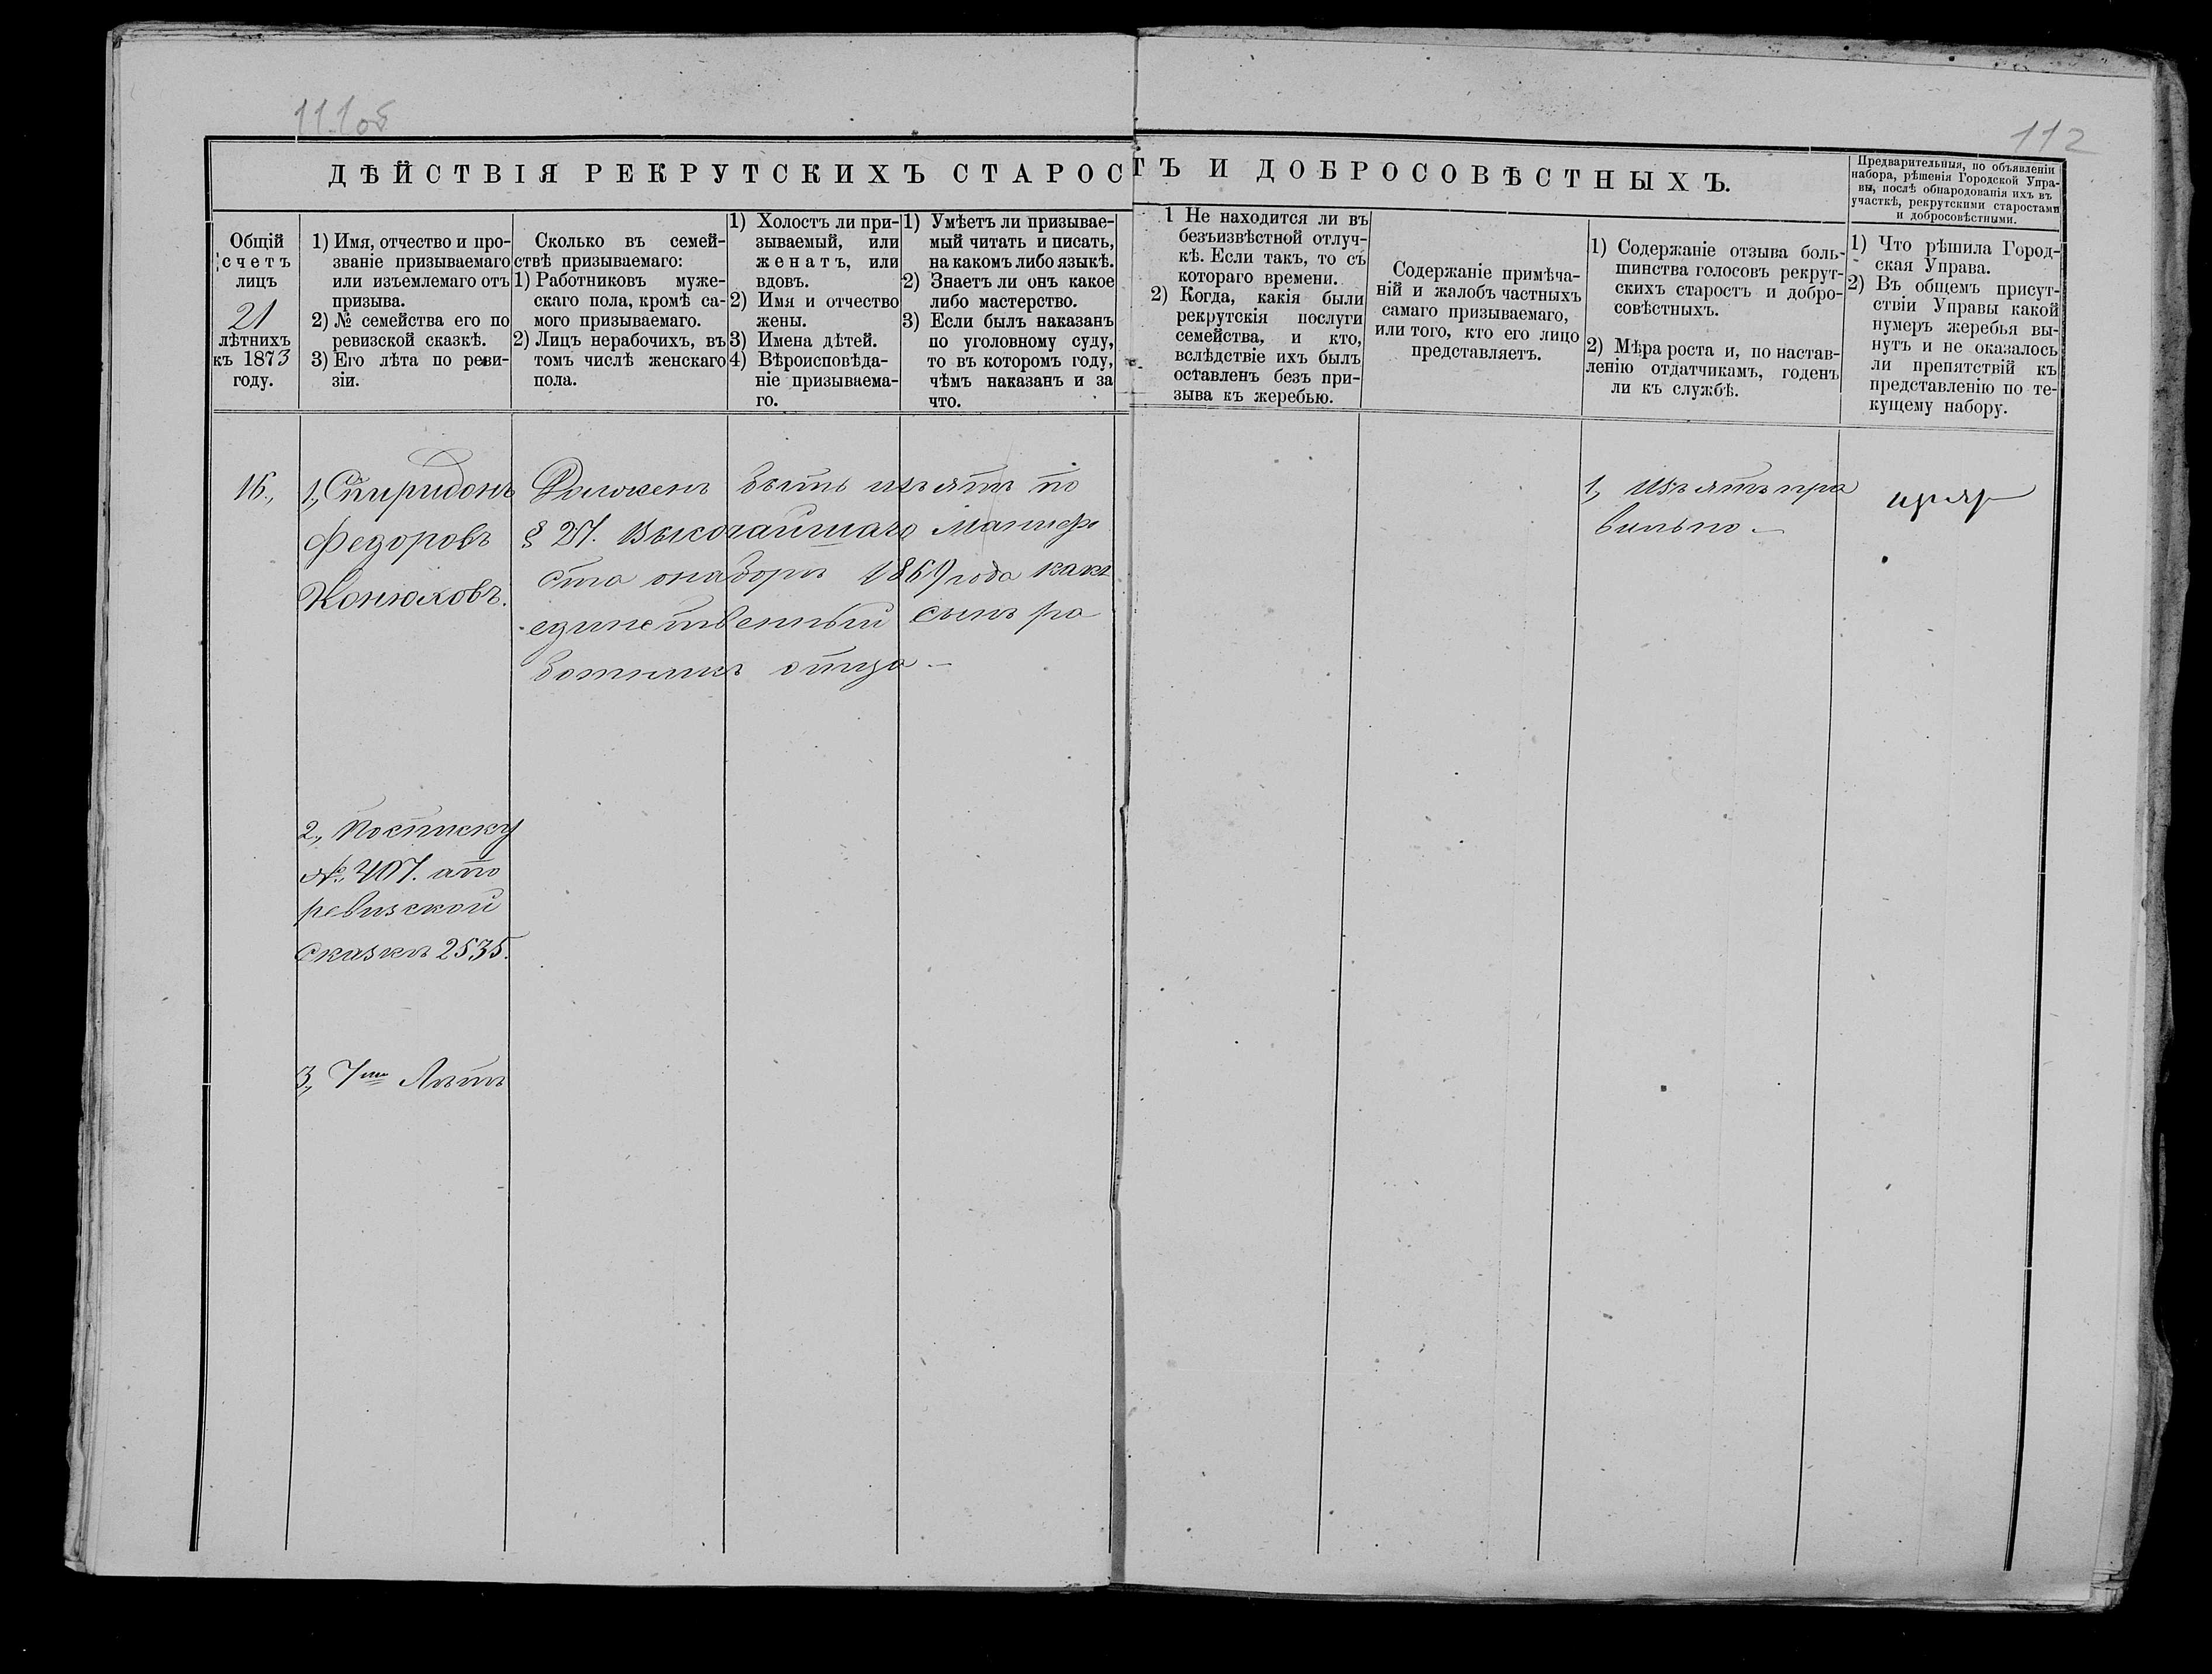 111об
112
ДѢЙСТВІЯ РЕКРУТСКИХЪ СТАРОСТЪ И ДОБРОСОВѢСТНЫХЪ.
Предварительныя, по объявленіи
набора, рѣшенія Городской Упра-
вы, послѣ обнародованія ихъ въ
участкѣ, рекрутскими старостами
и добросовѣстными.
Общій
счетъ
лицъ
21
лѣтнихъ
къ 1873
году.
1) Имя, отчество и про-
званіе призываемаго
или изъемлемаго отъ
призыва.
2) № семейства его по
ревизской сказкѣ.
3) Его лѣта по реви-
зіи.
Сколько въ семей-
ствѣ призываемаго:
1) Работниковъ муже-
скаго пола, кромѣ са-
мого призываемаго.
2) Лицъ нерабочихъ, въ
томъ числѣ женскаго
пола.
1) Холостъ ли при-
зываемый, или
женатъ, или
вдовъ.
2) Имя и отчество
жены.
3) Имена дѣтей.
4) Вѣроисповѣда-
ніе призываема-
го.
1) Умѣетъ ли призывае-
мый читать и писать,
на какомъ либо языкѣ.
2) Знаетъ ли онъ какое
либо мастерство.
3) Если былъ наказанъ
по уголовному суду,
то въ которомъ году,
чѣмъ наказанъ и за
что.
1 Не находится ли въ
безъизвѣстной отлуч-
кѣ. Если такъ, то съ
котораго времени.
2) Когда, какія были
рекрутскія послуги
семейства, и кто,
вслѣдствіе ихъ былъ
оставленъ безъ при-
зыва къ жеребью.
Содержаніе примѣча-
ній и жалобъ частныхъ
самаго призываемаго,
или того, кто его лицо
представляетъ.
1) Содержаніе отзыва боль-
шинства голосовъ рекрут-
скихъ старостъ и добро-
совѣстныхъ.
2) Мѣра роста и, по настав-
ленію отдатчикамъ, годенъ
ли къ службѣ.
1) Что рѣшила Город-
ская Управа.
2) Въ общемъ присут-
ствіи Управы какой
нумеръ жеребья вы-
нутъ и не оказалось
ли препятствій къ
представленію по те-
кущему набору.
16.,
1., Спиридонъ
Федоровъ
Конюховъ.
Долженъ быть изъятъ по
§ 27. Высочайшаго Манифе
ста о наборѣ 1869 года какъ
единственный сынъ ра
ботникъ отца —
1, Изъятъ пра
вильно —
2., По списку
№. 407. а по
ревизской
сказкѣ 2535.
3., 7ми Лѣтъ